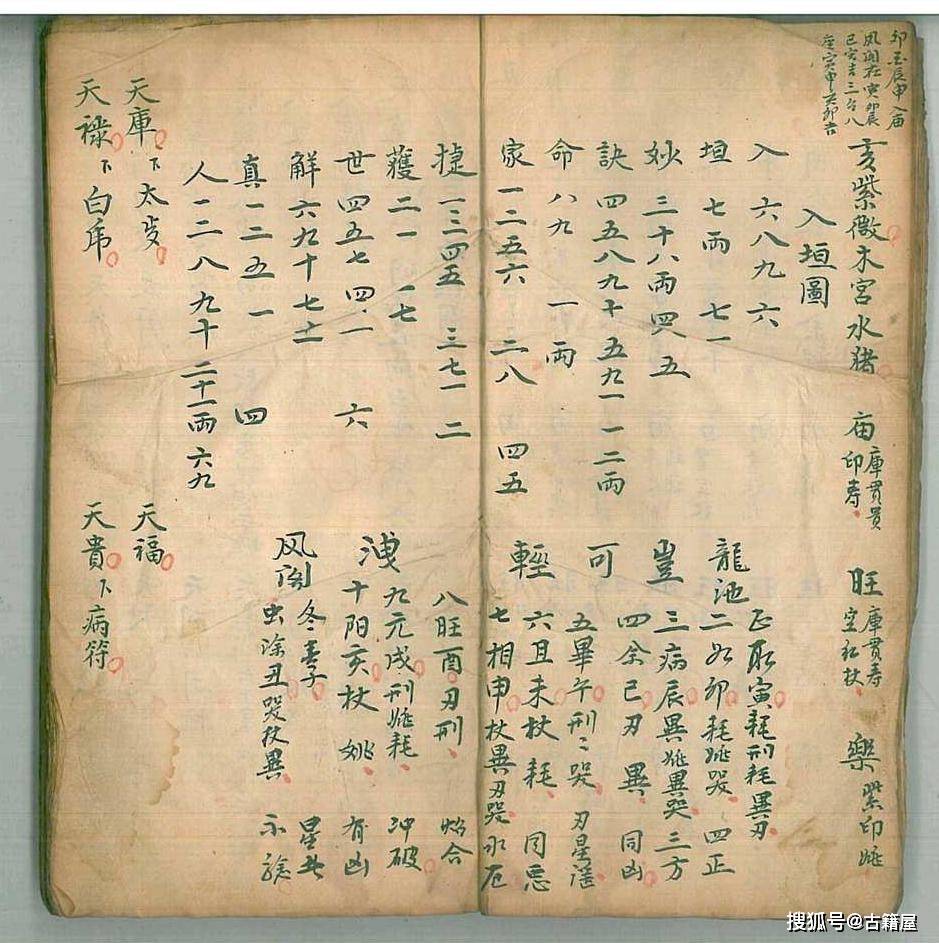 卯玉辰申入庙
風閣在寅卯辰
己寅吉三台八
座寅申亥卯吉
亥紫微木宮水豬
庙 庫貫貴
印寿
旺 庫貫寿
空紅杖
樂 紫印姚
入垣圖
入 六八九 六
垣 七兩 七一
妙 三十八兩四八 五
訣 四五八九十五九一一二兩
命 八九 一兩
家 一二五六 二八 四五
捷 一三四五 三七一 二
獲 二一 一七
世 四五七 四一 六
解 六九十七十一
真 一二五一 四
人 一二八 九十 二十一兩 六九
龍池 正取寅耗刑耗異刃
二如卯耗姚哭 四正
豈 三病辰異姚異哭 三方
四余巳刃 異 同凶
可 五畢午刑刑哭 刃星謠
六且未杖 耗 同惡
輕 七相申杖異刃哭 永厄
八旺酉刃刑 始合
洩 九元戌刑姚耗 冲破
十阳亥杖 姚 有凶
风阁 冬辜子 星
虫涂丑哭杖異 示
天庫下太岁
天祿下白虎
天福
天貴下病符
搜狐号@古籍屋